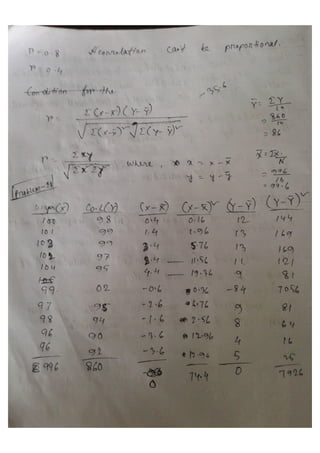 r = 0.8
correlation can't be proportional.
r = 0.4
Condition for the
r = Σ(x-x̄)(Y-Ȳ) / √Σ(x-x̄)² √Σ(Y-Ȳ)²
Ȳ = ΣY/10
= 860/10
= 86
r = Σxy / √Σx²Σy² where, x = x-x̄
y = y-ȳ
X̄ = ΣX/N
= 996/10
= 99.6
Problem-
(X) (Y) (X-X̄) (X-X̄)² (Y-Ȳ) (Y-Ȳ)²
100 98 0.4 0.16 12 144
101 99 1.4 1.96 13 169
102 99 2.4 5.76 13 169
102 97 2.4 — 11.56 11 121
104 95 4.4 — 19.36 9 81
99 02 -0.6 0.36 -84 7056
97 95 -2.6 6.76 9 81
98 94 -1.6 2.56 8 64
96 90 -3.6 12.96 4 16
96 92 -3.6 12.96 5 25
996 860 0 74.4 0 7926